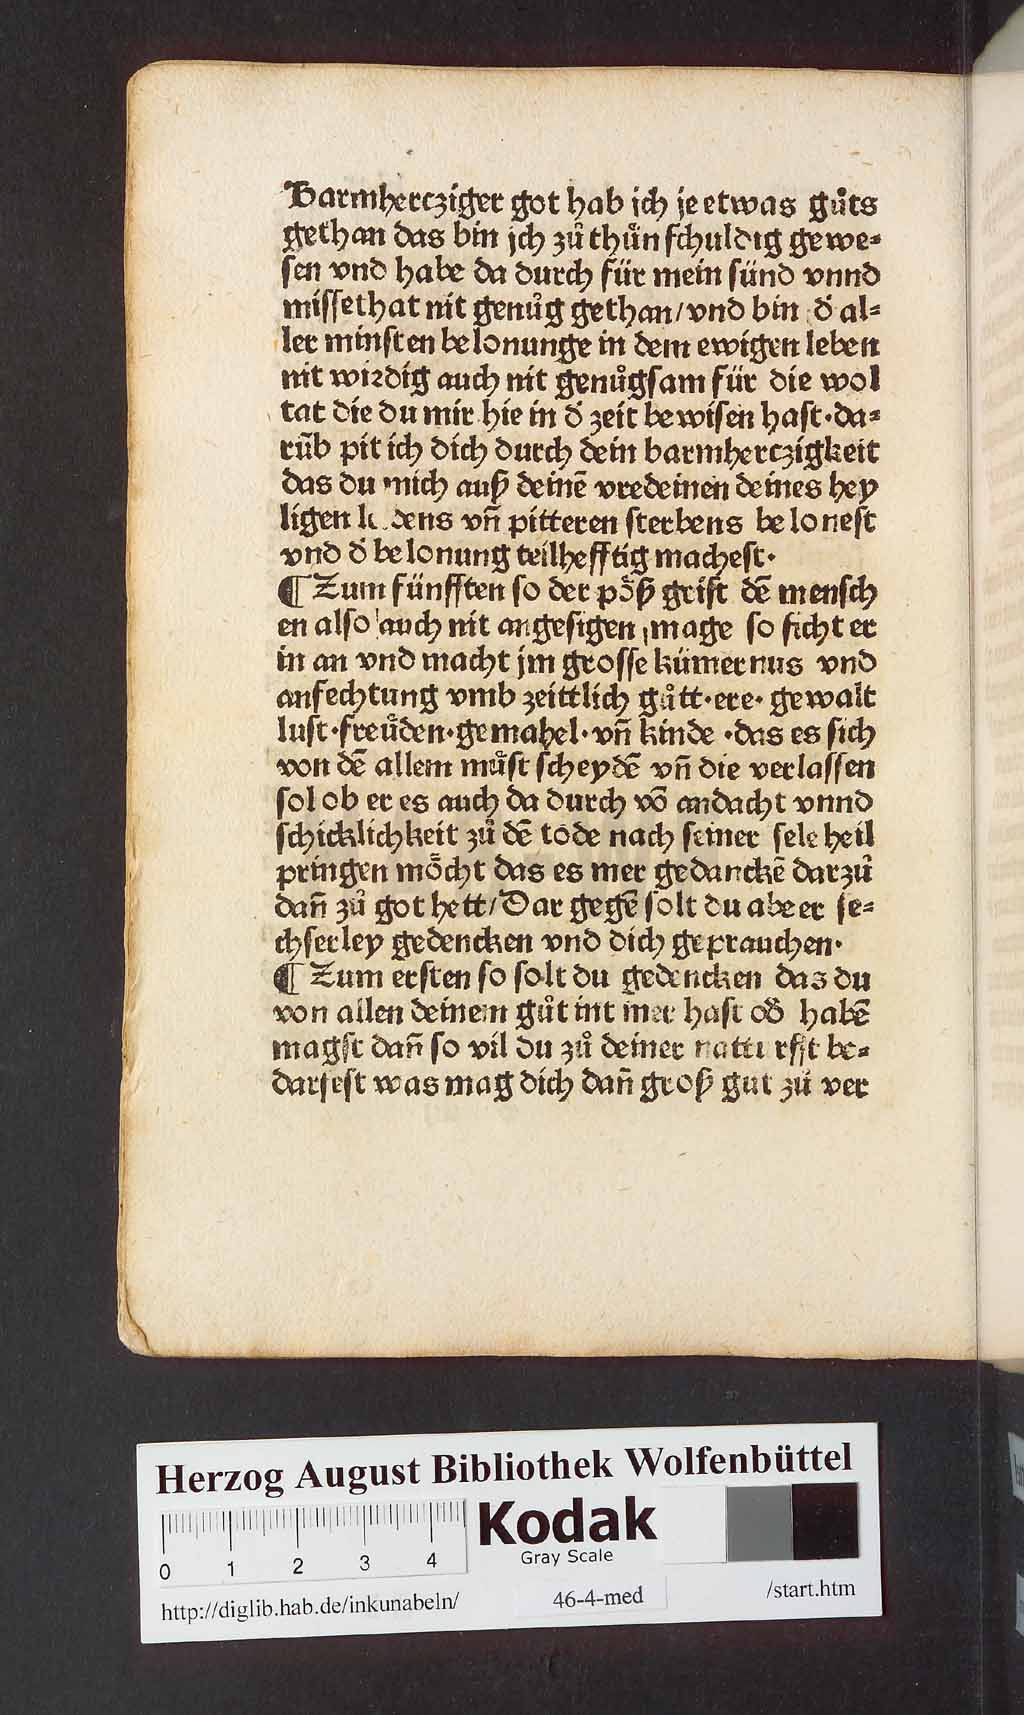 Barmhercziger got hab ich je etwas gůts
gethan das bin jch zů thůn schuldig gewe⸗
sen vnd habe da durch für mein sünd vnnd
missethat nit genůg gethan/vnd bin d̕ al⸗
ler minsten belonunge in dem ewigen leben
nit wirdig auch nit genůgsam für die wol
tat die du mir hie in d̕ zeit bewisen hast·da⸗
rūb pit ich dich durch dein barmherczigkeit
das du mich auß deinē vredeinen deines hey
ligen l dens vn̄ pitteren sterbens belonest
vnd d̕ belonung teilhefftig machest·
¶ Zum fünfften so der pöß geist dē mensch
en also auch nit angesigen mage so ficht er
in an vnd macht jm grosse kümernus vnd
anfechtung vmb zeittlich gůtt·ere·gewalt
lust·freüden·gemahel·vn̄ kinde·das es sich
von dē allem můst scheydē vn̄ die verlassen
sol ob er es auch da durch vō andacht vnnd
schicklichkeit zů dē tode nach seiner sele heil
pringen möcht das es mer gedanckē darzů
dan̄ zů got hett/Dar gegē solt du abeer se⸗
chserley gedencken vnd dich geprauchen·
¶ Zum ersten so solt du gedencken das du
von allen deinem gůt int mer hast od̕ habē
magst dan̄ so vil du zů deiner natturfft be⸗
darfest was mag dich dan̄ groß gut zů ver
Herzog August Bibliothek Wolfenbüttel
0 1 2 3 4
Kodak
Gray Scale
http://diglib.hab.de/inkunabeln/ 46-4-med /start.htm